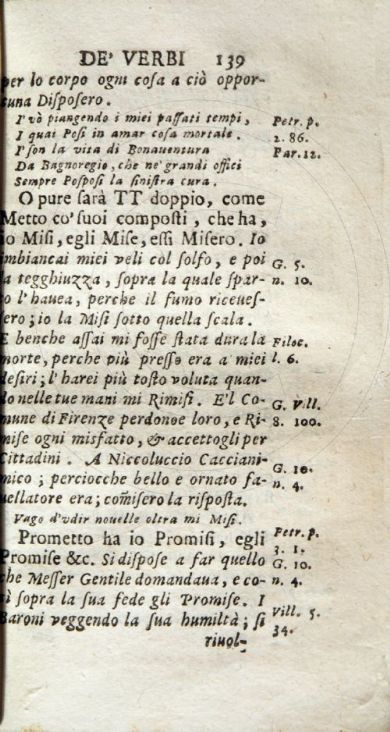 DE' VERBI 139
per lo corpo ogni cosa a ciò oppor-
tuna Disposero.
I' vò piangendo i miei passati tempi, Petr. p.
I quai Posi in amar cosa mortale. 2. 86.
I' son la vita di Bonauentura Par. 12.
Da Bagnoregio, che ne' grandi offici
Sempre Posposi la sinistra cura.
O pure sarà TT doppio, come
Metto co' suoi composti, che ha,
io Misi, egli Mise, essi Misero. Io
imbiancai miei veli col solfo, e poi G. 5.
la tegghiuzza, sopra la quale spar- n. 10.
so l'hauea, perche il fumo riceues-
sero; io la Misi sotto quella scala.
E benche assai mi fosse stata dura la Filoc.
morte, perche più presso era a miei l. 6.
desiri; l'harei più tosto voluta quan-
do nelle tue mani mi Rimisi. E'l Co- G. Vill.
mune di Firenze perdonoe loro, e Ri- 8. 100.
mise ogni misfatto, & accettogli per
Cittadini. A Niccoluccio Cacciani- G. 10.
mico; perciocche bello e ornato fa- n. 4.
uellatore era; com̃isero la risposta.
Vago d'vdir nouelle oltra mi Misi. Petr. p.
Prometto ha io Promisi, egli 3. 1.
Promise &c. Si dispose a far quello G. 10.
che Messer Gentile domandaua, e co- n. 4.
sì sopra la sua fede gli Promise. I
Baroni veggendo la sua humiltà; si Vill. 5.
34.
riuol-